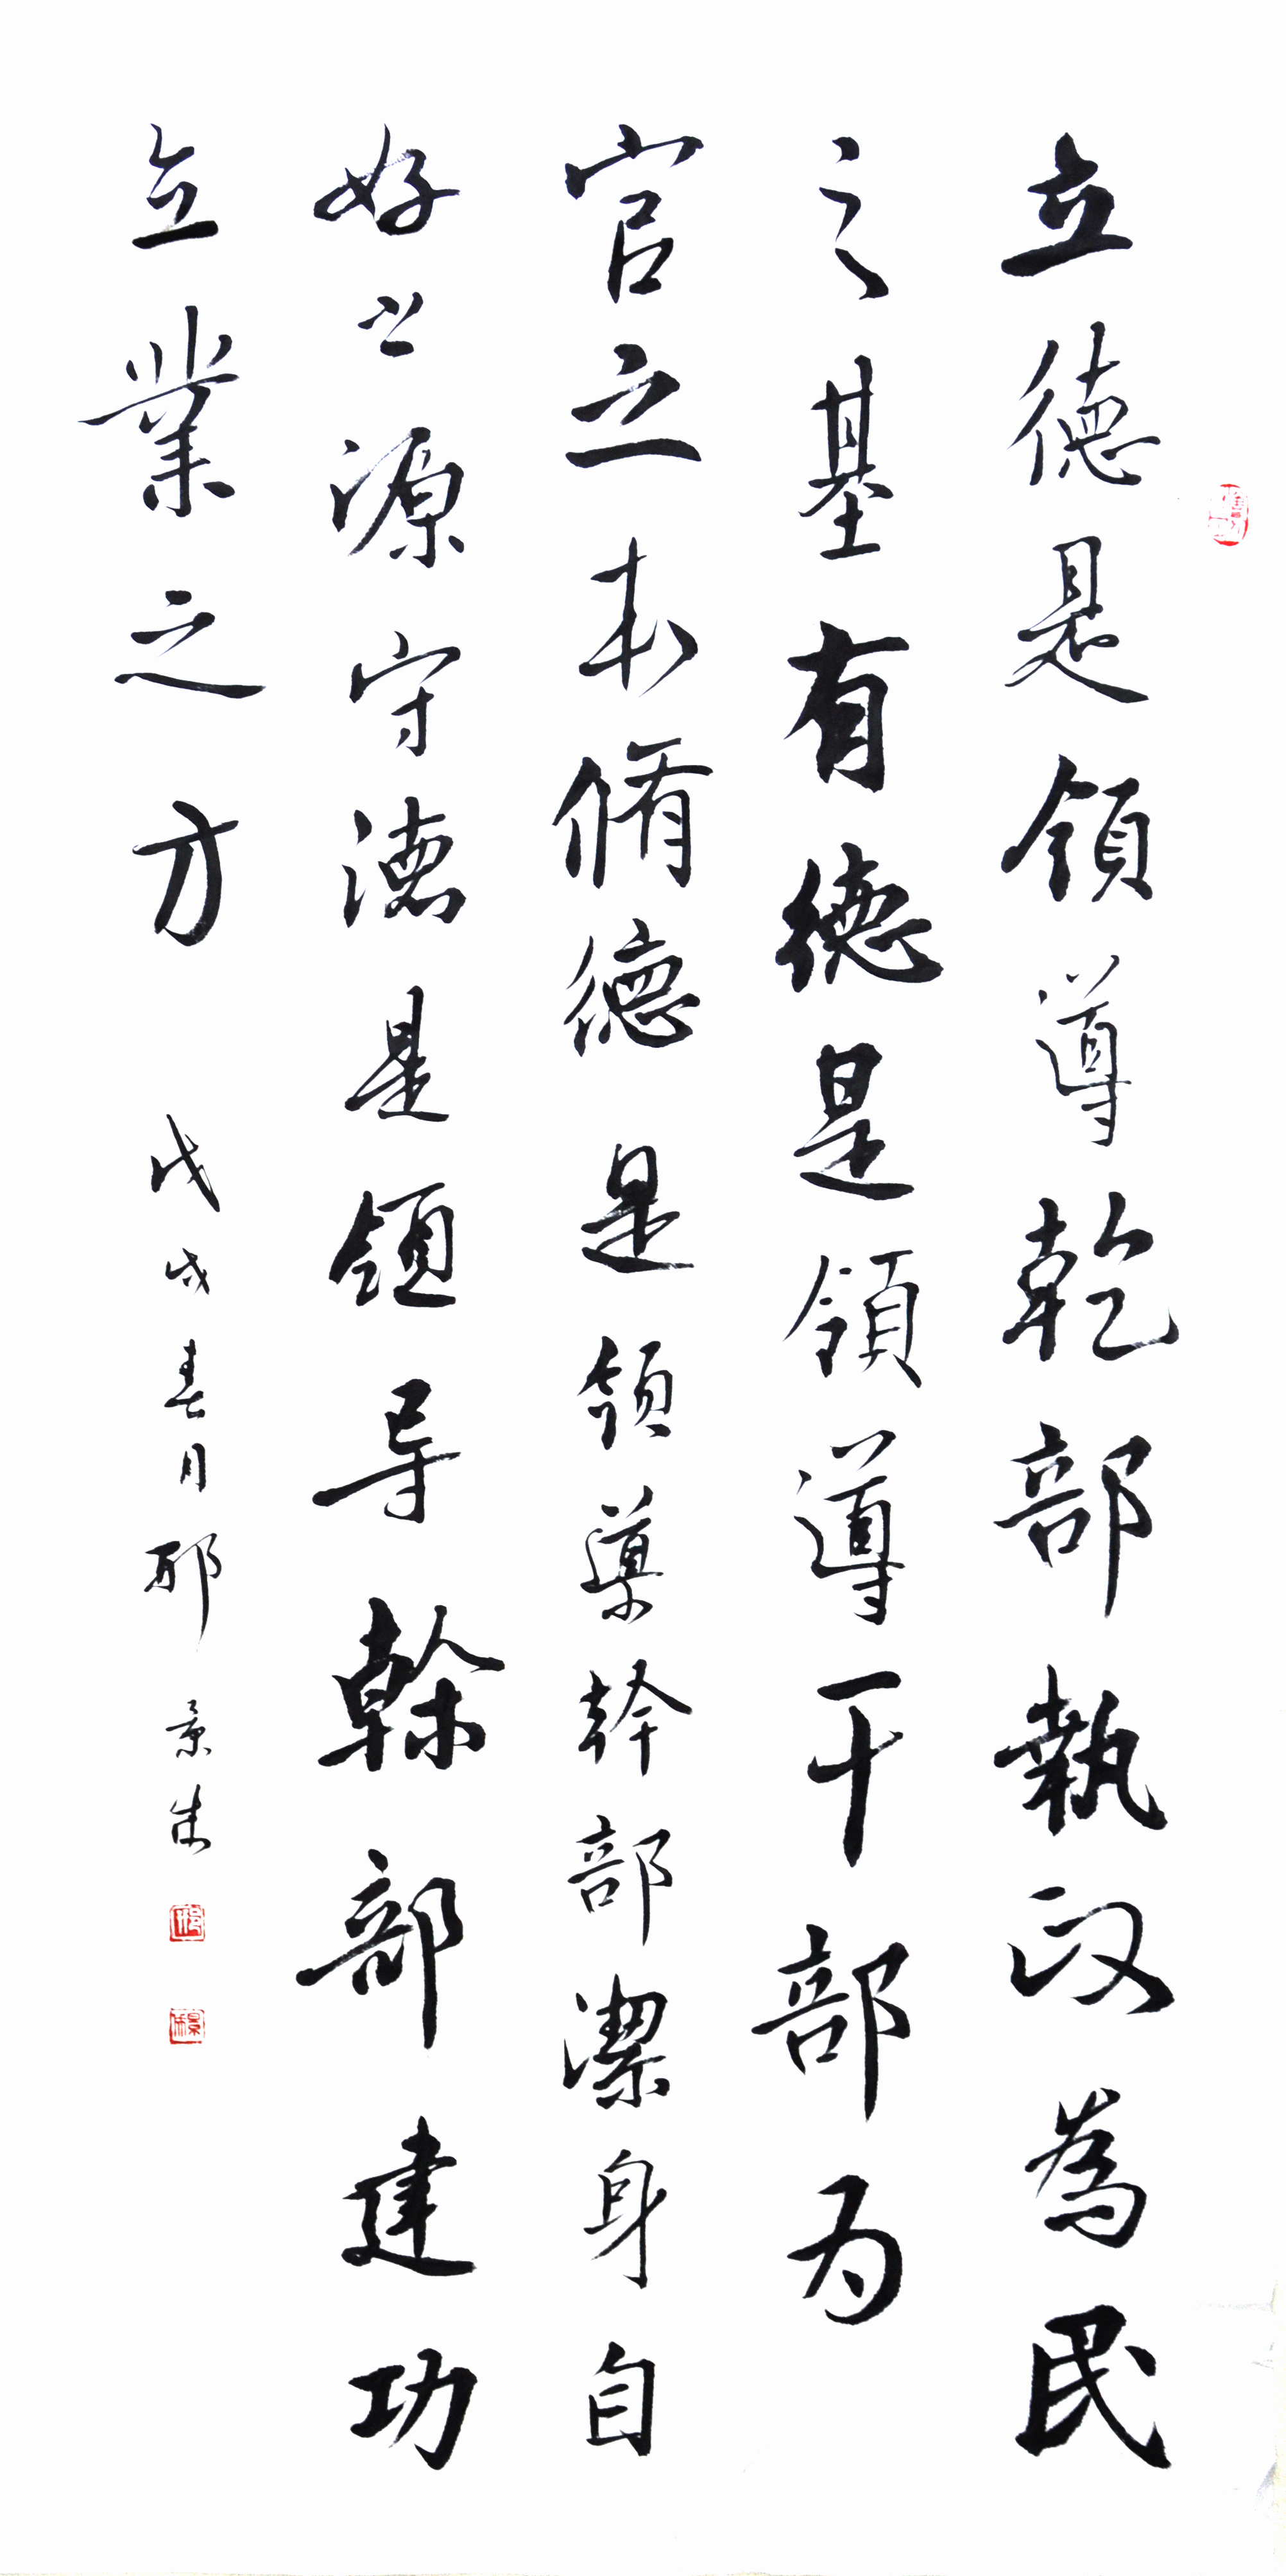 立德是領導乾部執政為民
之基有德是領導干部为
官之本脩德是領導幹部潔身自
好之源守德是領导榦部建功
立業之方
戊戌春月邢景成